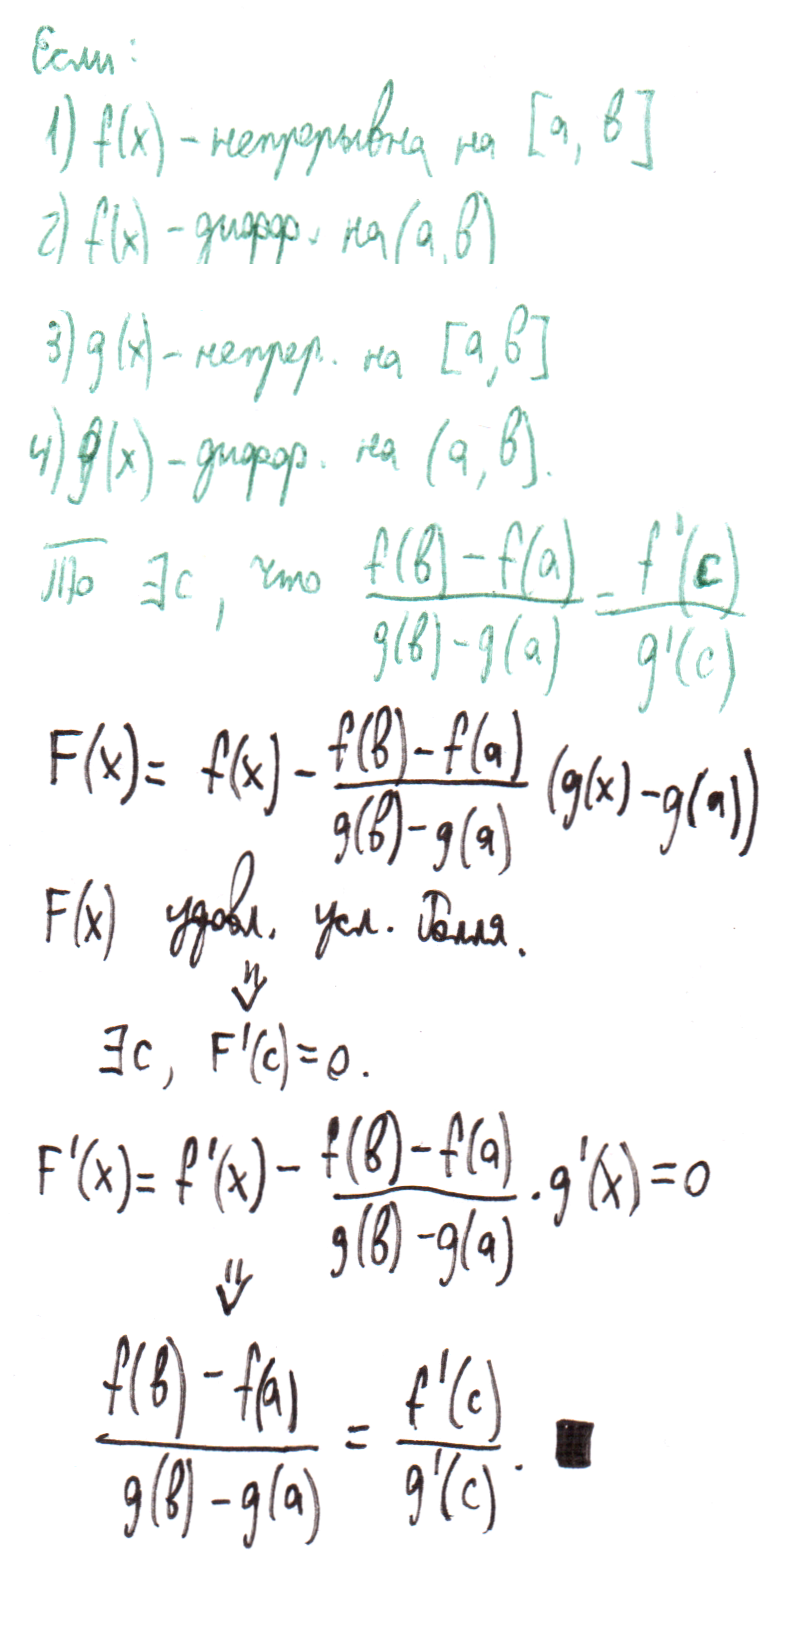 Если:
1) f(x) – непрерывна на [a, в]
2) f(x) – диффер. на (a, в)
3) g(x) – непрер. на [a, в]
4) g(x) – диффер. на (a, в).
То ∃c, что (f(в) – f(a))/(g(в) – g(a)) = f'(c)/g'(c)
F(x) = f(x) – (f(в) – f(a))/(g(в) – g(a)) (g(x) – g(a))
F(x) удовл. усл. Ролля.
⇓
∃c, F'(c) = 0.
F'(x) = f'(x) – (f(в) – f(a))/(g(в) – g(a)) · g'(x) = 0
⇓
(f(в) – f(a))/(g(в) – g(a)) = f'(c)/g'(c). ■